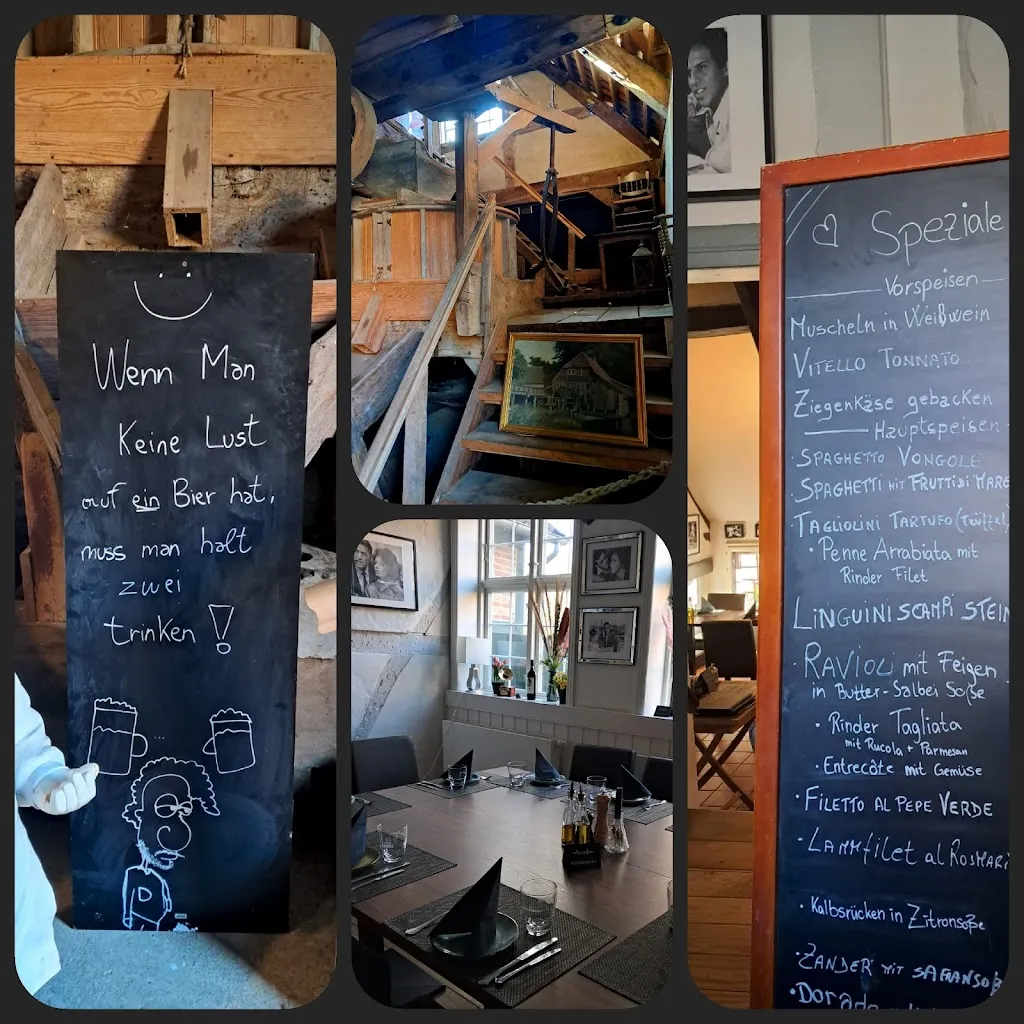 Wenn Man
Keine Lust
auf ein Bier hat,
muss man halt
zwei
trinken !
D
Speziale
Vorspeisen
Muscheln in Weißwein
VITELLO TONNATO
Ziegenkäse gebacken
Hauptspeisen
SPAGHETTO VONGOLE
SPAGHETTI MIT FRUTTI DI MARE
TAGLIOLINI TARTUFO (Trüffel)
Penne Arrabiata mit
Rinder Filet
LINGUINI SCAMPI STEIN
RAVIOLI mit Feigen
in Butter-Salbei Soße
Rinder Tagliata
mit Rucola + Parmesan
Entrecôte mit Gemüse
FILETTO AL PEPE VERDE
LAMMfilet al ROSMARI
Kalbsrücken in Zitronsoße
ZANDER MIT SAFRANSOß
Dorade